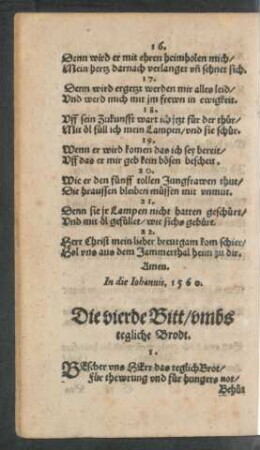 16.
Denn wird er mit ehren heimholen mich/
Mein hertz darnach verlanget vñ sehnet sich.
17.
Denn wird ergetzt werden mir alles leid/
Vnd werd mich mit jm frewn in ewigkeit.
18.
Vff sein Zukunfft wart ich jtzt für der thür/
Mit öl füll ich mein Lampen/vnd sie schür.
19.
Wenn er wird komen das ich sey bereit/
Vff das er mir geb kein bösen bescheit.
20.
Wie er den fünff tollen Jungfrawen thut/
Die draussen bleiben müssen mit vnmut.
21.
Denn sie jr Lampen nicht hatten geschürt/
Vnd mit öl gefület/wie sichs gebürt.
22.
Herr Christ mein lieber breutgam kom schier/
Hol vns aus dem Jammerthal heim zu dir.
Amen.
In die Iohannis, 1560.
Die vierde Bitt/vmbs
tegliche Brodt.
1.
BEscher vns HErr das teglich Brot/
Für thewrung vnd für hungers not/
Behüt